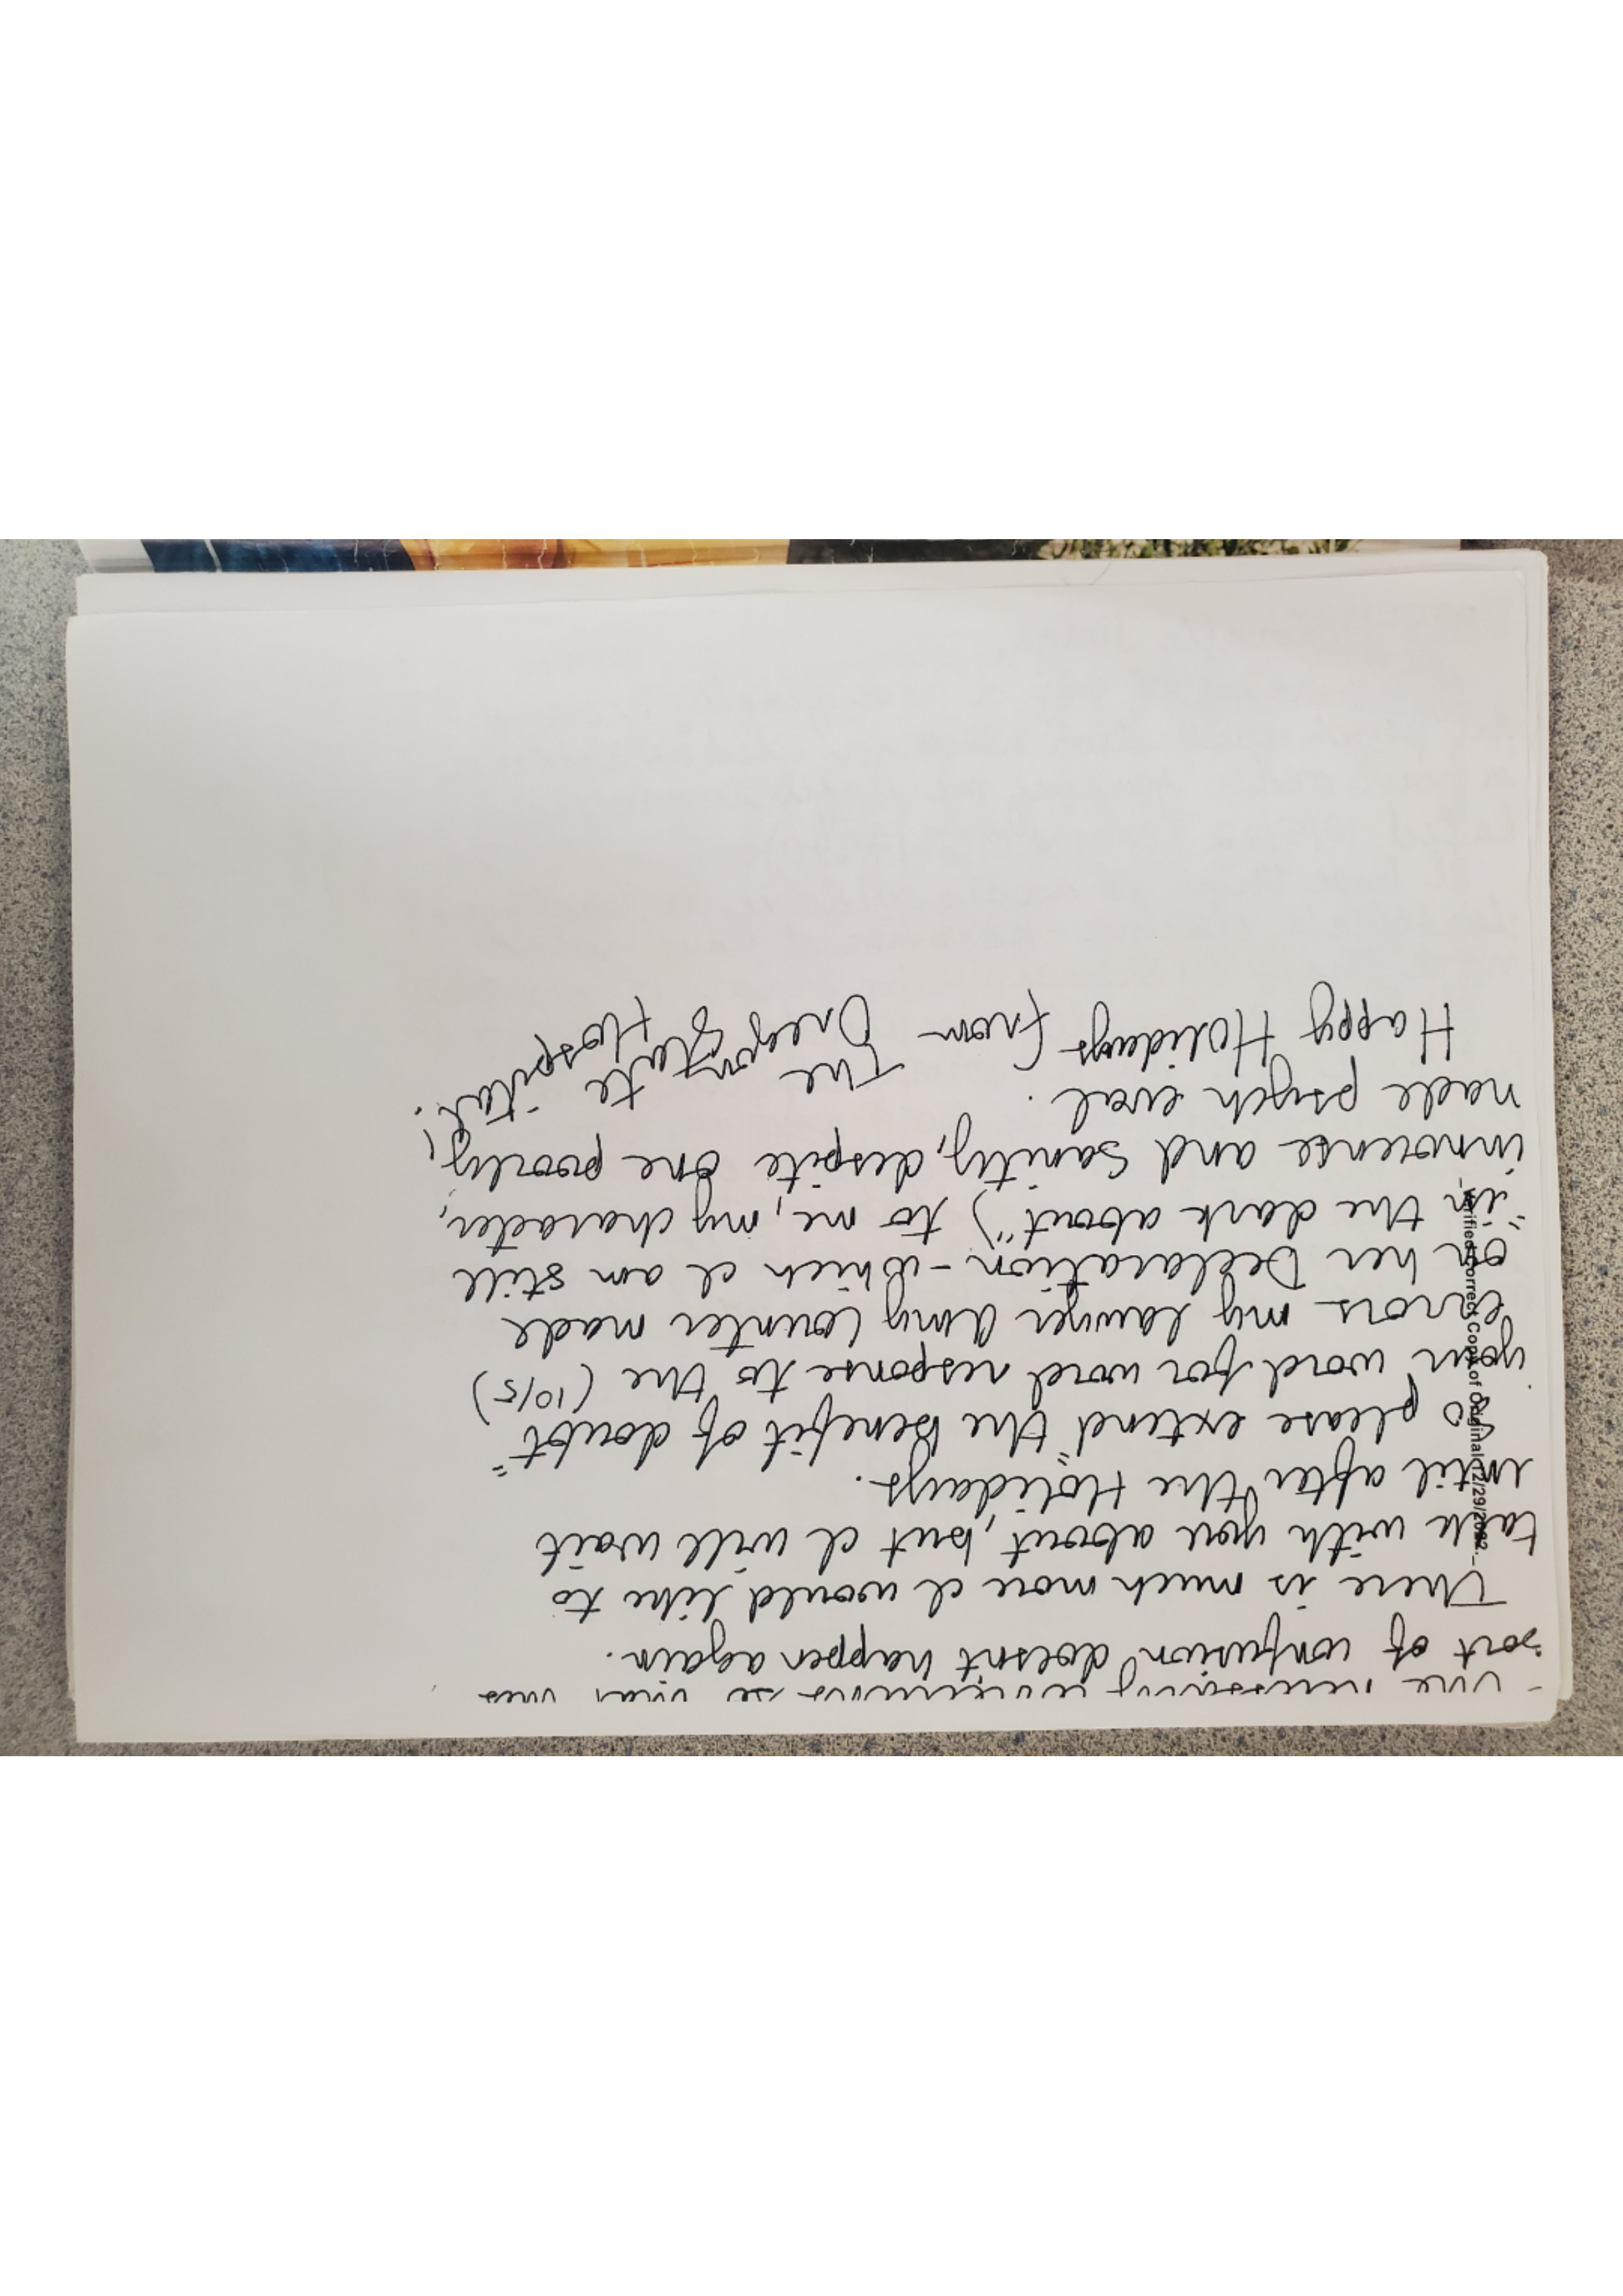 necessary
sort of confusion doesnt happen again.
There is much more I would like to
talk with you about, but I will wait
until after the Holidays.
So please extend "the Benefit of doubt"
your word for word response to the (10/5)
errors my lawyer Amy Counter made
on her Declaration - which I am still
"in the dark about") to me, my character,
innocense and sanity, despite one poorly,
made psych eval.
Happy Holidays from The Oregon State Hospital.
Verified Correct Copy of Original 12/29/2022.